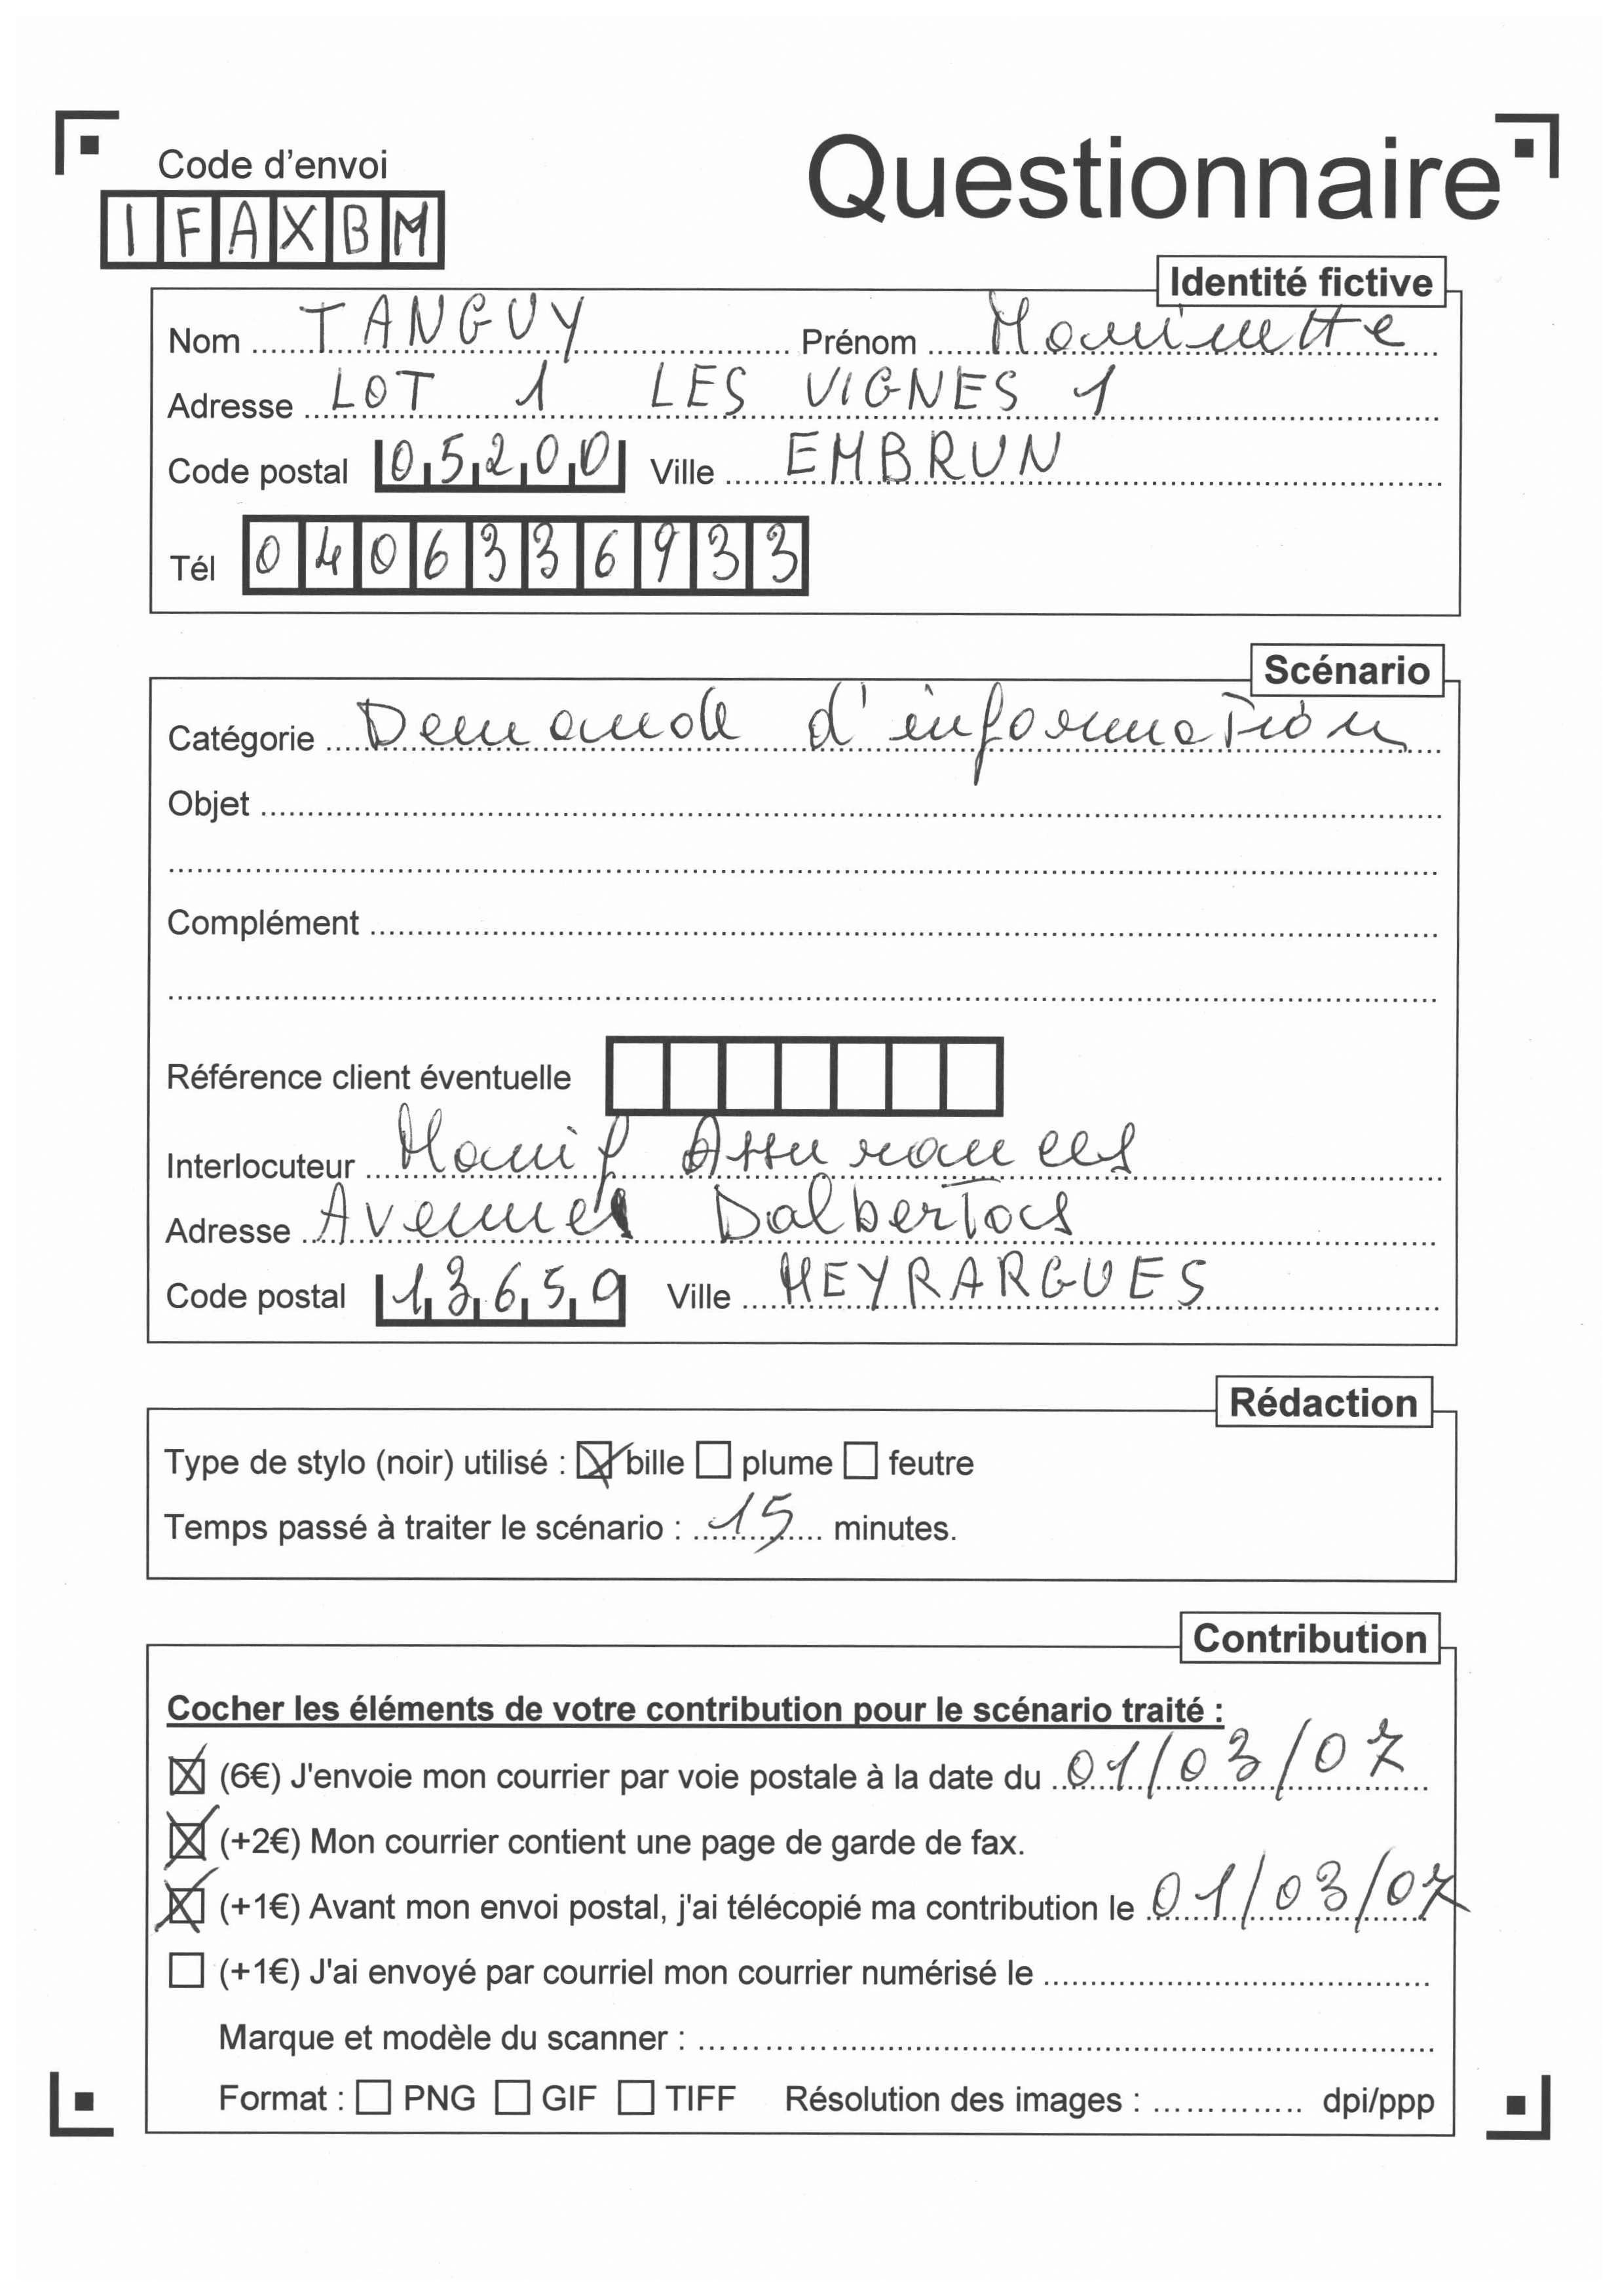 Code d'envoi
Questionnaire
IFAXBM
Identité fictive
Nom TANGUY Prénom
Adresse LOT 1 LES VIGNES 1
Code postal 05200 Ville EMBRUN
Tél 0406336933
Scénario
Catégorie Demande d'information
Objet
Complément
Référence client éventuelle
Interlocuteur Manif Assurances
Adresse Avenue
Code postal 13659 Ville MEYRARGUES
Rédaction
Type de stylo (noir) utilisé : bille plume feutre
Temps passé à traiter le scénario : 15 minutes.
Contribution
Cocher les éléments de votre contribution pour le scénario traité :
(6€) J'envoie mon courrier par voie postale à la date du 01/03/07
(+2€) Mon courrier contient une page de garde de fax.
(+1€) Avant mon envoi postal, j'ai télécopié ma contribution le 01/03/07
(+1€) J'ai envoyé par courriel mon courrier numérisé le
Marque et modèle du scanner :
Format : PNG GIF TIFF Résolution des images : dpi/ppp